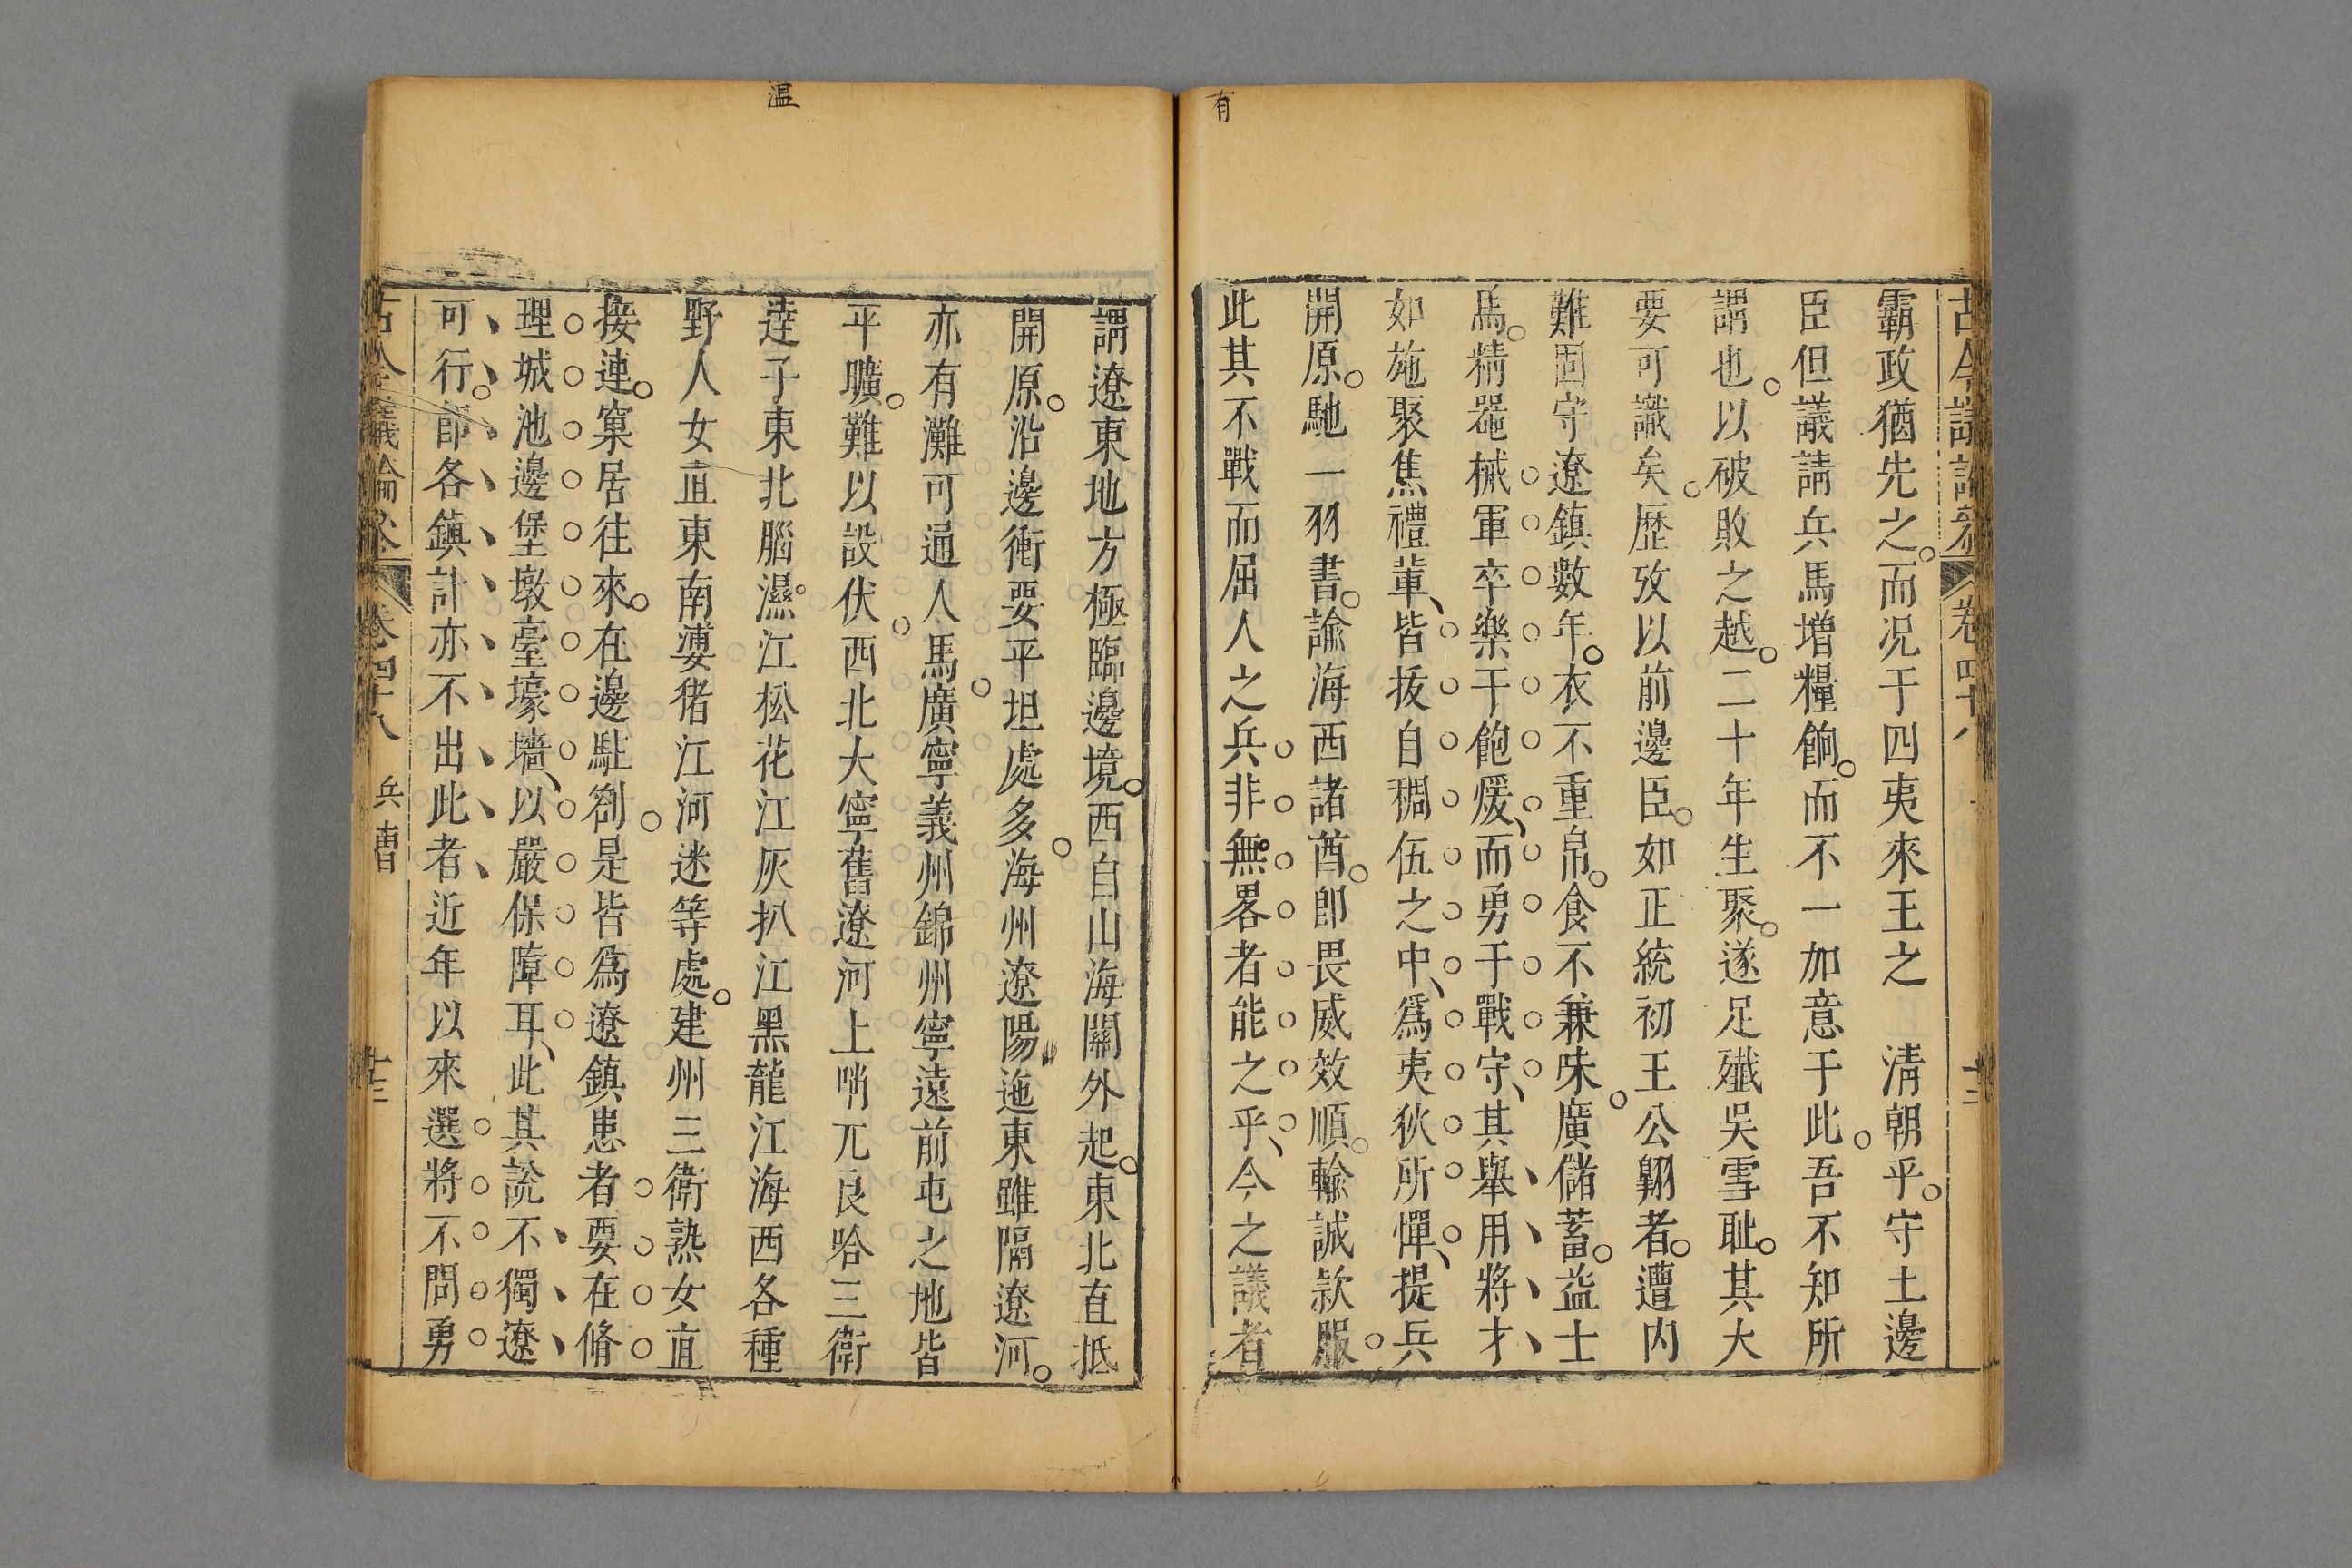 有
古今議論參 卷四十八 十二
霸政猶先之。而况于四夷來王之　清朝乎。守土邊
臣但議請兵馬增糧餉。而不一加意于此。吾不知所
謂也。以破敗之越。二十年生聚。遂足殲吳雪耻。其大
要可識矣。歷攷以前邊臣。如正統初王公翺者。遭內
難固守遼鎮數年。衣不重帛。食不兼味。廣儲蓄。益士
馬。精噐械軍卒樂于飽煖、而勇于戰守、其舉用將才
如施聚焦禮軰、皆拔自稠伍之中、爲夷狄所憚、提兵
開原。馳一羽書。諭海西諸酋。卽畏威效順。輸誠欵服。
此其不戰而屈人之兵非無畧者能之乎、今之議者
溫
謂遼東地方極臨邊境。西自山海關外起。東北直抵
開原。沿邊衝要平坦處多。海州遼陽迤東雖隔遼河。
亦有灘可通人馬。廣寧義州錦州寧遠前屯之地皆
平曠。難以設伏。西北大寧舊遼河上哨兀良哈三衛
達子東北腦溫江松花江灰扒江黑龍江海西各種
野人女直東南婆猪江河迷等處。建州三衛熟女直
接連。窠居往來。在邊駐劄。是皆爲遼鎮患者要在脩
理城池邊堡墩臺壕墻、以嚴保障耳、此其說不獨遼
可行。卽各鎮計亦不出此者近年以來選將不問勇
古今議論參 卷四十八 兵曹 十三